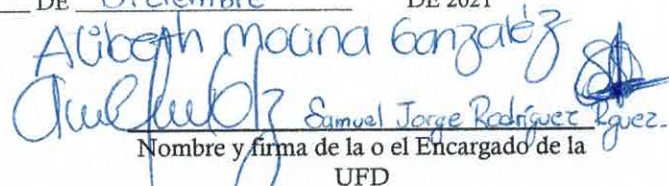 DE Diciembre DE 2021
Alibeth Molina González
Samuel Jorge Rodríguez Rguez.
Nombre y firma de la o el Encargado de la
UFD